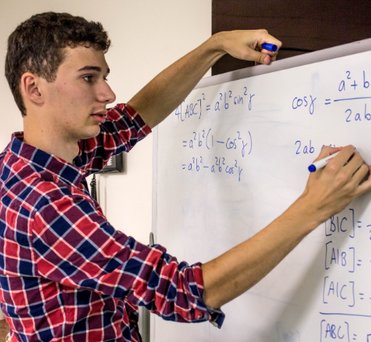 4[ABC]² = a²b² sin²γ
= a²b²(1 - cos²γ)
= a²b² - a²b² cos²γ
cosγ = a² + b
2ab
2ab
[BIC] =
[AIB] =
[AIC] =
[ABC] =